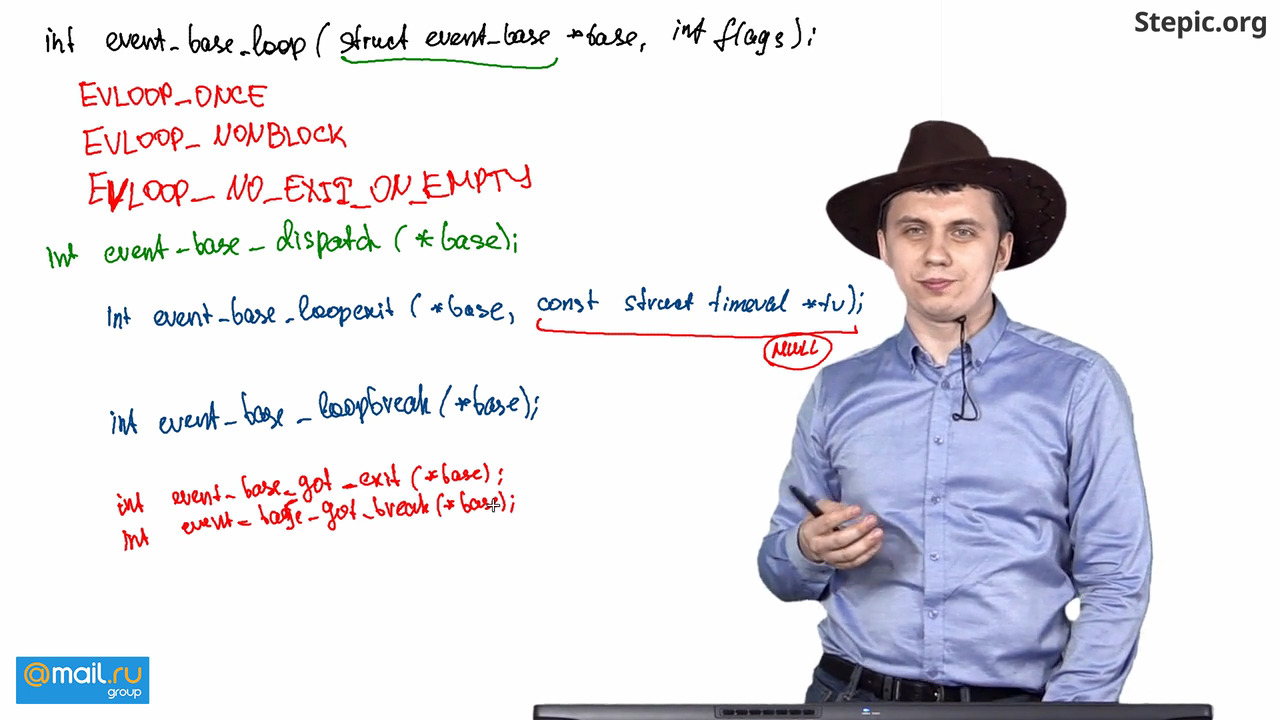 Stepic.org
int event_base_loop (struct event_base *base, int flags);
EVLOOP_ONCE
EVLOOP_NONBLOCK
EVLOOP_NO_EXIT_ON_EMPTY
int event_base_dispatch (*base);
int event_base_loopexit (*base, const struct timeval *tv);
NULL
int event_base_loopbreak (*base);
int event_base_got_exit (*base);
int event_base_got_break (*base);
@mail.ru
group